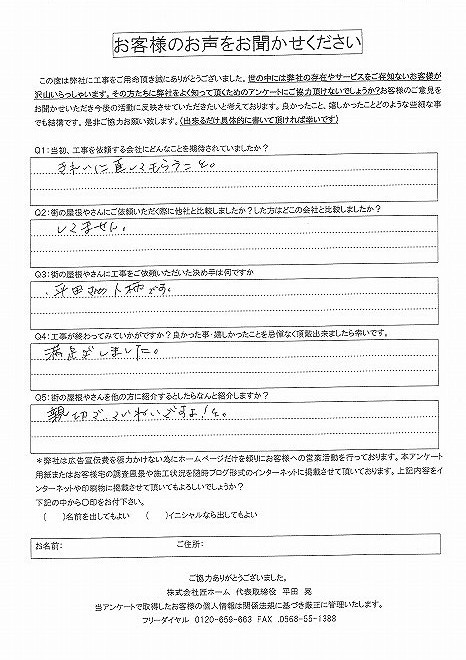 お客様のお声をお聞かせください
この度は弊社に工事をご用命頂き誠にありがとうございました。世の中には弊社の存在やサービスをご存知ないお客様が
沢山いらっしゃいます。その方たちに弊社をよく知って頂くためのアンケートにご協力頂けないでしょうか?お客様のご意見を
お聞かせいただき今後の活動に反映させていただきたいと考えております。良かったこと、嬉しかったことどのような些細な事
でも結構です。是非ご協力お願い致します。(出来るだけ具体的に書いて頂ければ幸いです)
Q1:当初、工事を依頼する会社にどんなことを期待されていましたか?
きれいに直してもらうこと。
Q2:街の屋根やさんにご依頼いただく際に他社と比較しましたか?した方はどこの会社と比較しましたか?
してません。
Q3:街の屋根やさんに工事をご依頼いただいた決め手は何ですか
平田さんの人柄です。
Q4:工事が終わってみていかがですか?良かった事・嬉しかったことを忌憚なく頂戴出来ましたら幸いです。
満足しました。
Q5:街の屋根やさんを他の方に紹介するとしたらなんと紹介しますか?
親切で、ていねいですよ!と。
*弊社は広告宣伝費を極力かけない為にホームページだけを頼りにお客様への営業活動を行っております。本アンケート
用紙またはお客様宅の調査風景や施工状況を随時ブログ形式のインターネットに掲載させて頂いております。上記内容をイ
ンターネットや印刷物に掲載させて頂いてもよろしいでしょうか?
下記の中から〇印をお付下さい。
( )名前を出してもよい ( )イニシャルなら出してもよい
お名前: ご住所:
ご協力ありがとうございました。
株式会社匠ホーム 代表取締役 平田 晃
当アンケートで取得したお客様の個人情報は関係法規に基づき厳正に管理いたします。
フリーダイヤル 0120-659-663 FAX .0568-55-1388